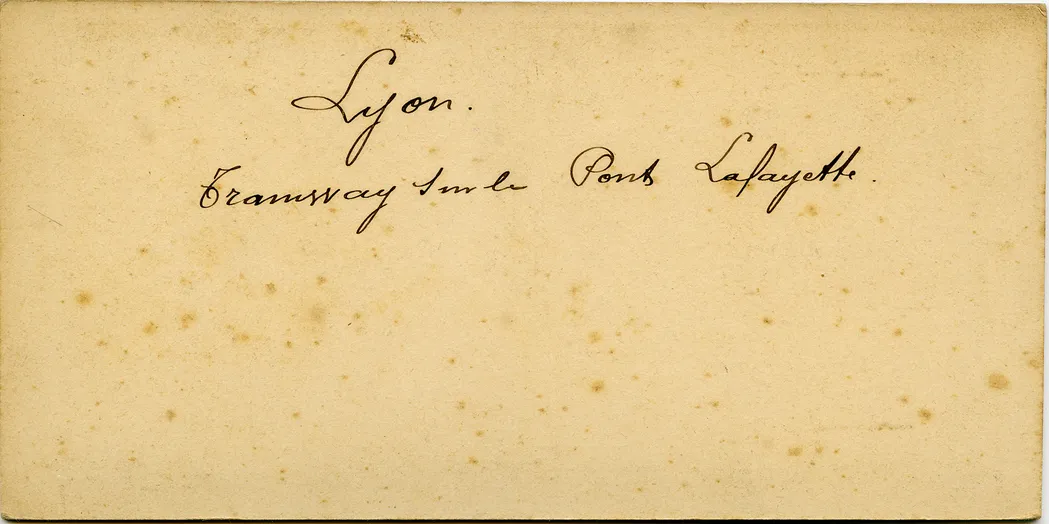 Lyon.
Tramway sur le Pont Lafayette.